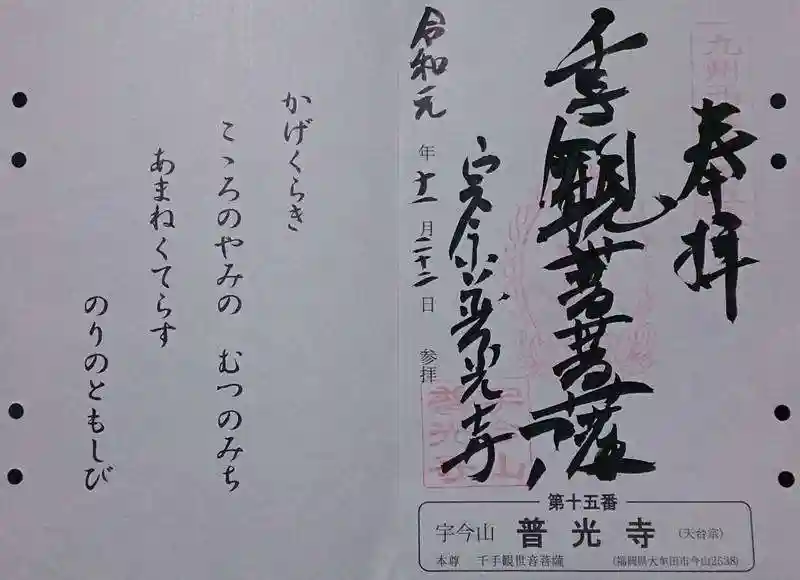 奉拝
千手觀世音菩薩
宇今山普光寺
令和元年十一月二十二日 参拝
第十五番
宇今山 普光寺 (天台宗)
本尊 千手観世音菩薩 (福岡県大牟田市今山2538)
かげくらき
こゝろのやみの むつのみち
あまねくてらす
のりのともしび